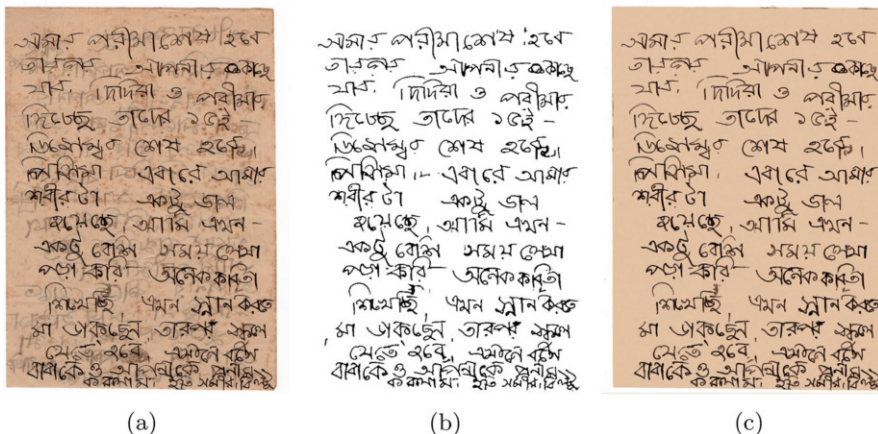 আমার পরীক্ষা শেষ হলে
তারপর আপনার কাছে
যাব। দিদিরা ও পরীক্ষার
দিতেছে তাদের ১৫ই –
ডিসেম্বর শেষ হবে।
এবারে আমার
শরীরটা একটু ভাল
হয়েছে, আমি এখন –
একটু বেশি সময় লেখা
পড়া করি – অনেক কবিতা
শিখেছি এখন স্নান করতে
মা ডাকছেন, তারপর স্কুল
যেতে হবে, এখানে বসে
বাবাকে ও আপনাকে প্রণাম
করলাম। ইতি
(a)
আমার পরীক্ষা শেষ হলে
তারপর আপনার কাছে
যাব। দিদিরা ও পরীক্ষার
দিতেছে তাদের ১৫ই –
ডিসেম্বর শেষ হবে।
এবারে আমার
শরীরটা একটু ভাল
হয়েছে, আমি এখন –
একটু বেশি সময় লেখা
পড়া করি – অনেক কবিতা
শিখেছি এখন স্নান করতে
মা ডাকছেন, তারপর স্কুল
যেতে হবে, এখানে বসে
বাবাকে ও আপনাকে প্রণাম
করলাম। ইতি
(b)
আমার পরীক্ষা শেষ হলে
তারপর আপনার কাছে
যাব। দিদিরা ও পরীক্ষার
দিতেছে তাদের ১৫ই –
ডিসেম্বর শেষ হবে।
এবারে আমার
শরীরটা একটু ভাল
হয়েছে, আমি এখন –
একটু বেশি সময় লেখা
পড়া করি – অনেক কবিতা
শিখেছি এখন স্নান করতে
মা ডাকছেন, তারপর স্কুল
যেতে হবে, এখানে বসে
বাবাকে ও আপনাকে প্রণাম
করলাম। ইতি
(c)